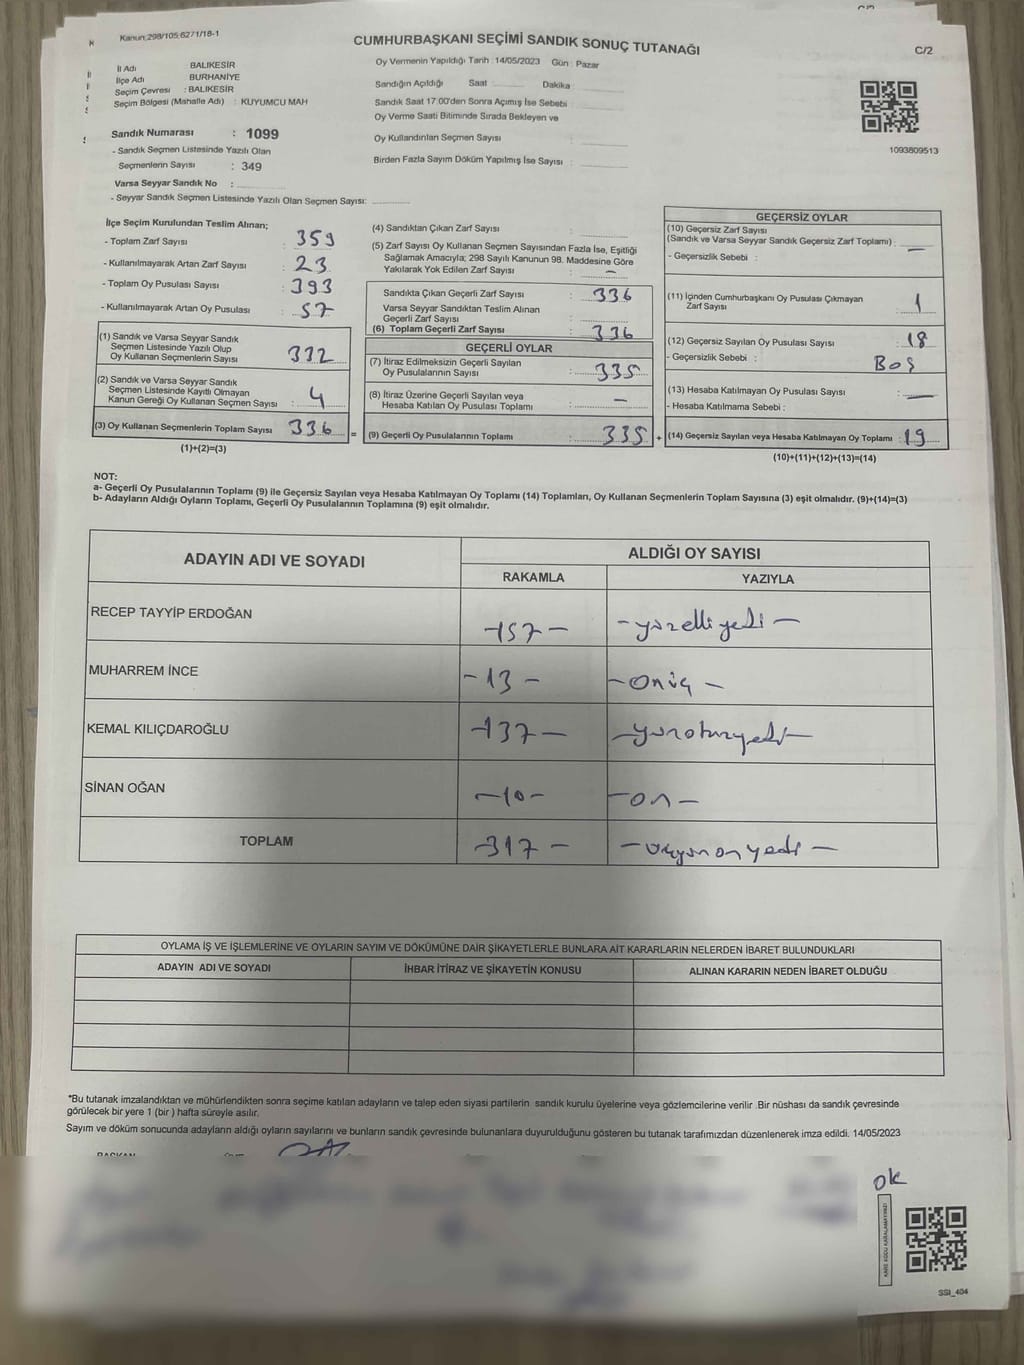 Kanun:298/105;6271/18-1
CUMHURBAŞKANI SEÇİMİ SANDIK SONUÇ TUTANAĞI
C/2
İl Adı BALIKESİR
İlçe Adı BURHANİYE
Seçim Çevresi : BALIKESİR
Seçim Bölgesi (Mahalle Adı) : KUYUMCU MAH
Sandık Numarası : 1099
- Sandık Seçmen Listesinde Yazılı Olan
Seçmenlerin Sayısı : 349
Varsa Seyyar Sandık No :
- Seyyar Sandık Seçmen Listesinde Yazılı Olan Seçmen Sayısı:
Oy Vermenin Yapıldığı Tarih :14/05/2023 Gün : Pazar
Sandığın Açıldığı Saat Dakika
Sandık Saat 17.00'den Sonra Açılmış İse Sebebi
Oy Verme Saati Bitiminde Sırada Bekleyen ve
Oy Kullandırılan Seçmen Sayısı :
Birden Fazla Sayım Döküm Yapılmış İse Sayısı :
1093809513
İlçe Seçim Kurulundan Teslim Alınan;
- Toplam Zarf Sayısı : 359
- Kullanılmayarak Artan Zarf Sayısı : 23
- Toplam Oy Pusulası Sayısı : 393
- Kullanılmayarak Artan Oy Pusulası : 57
(1) Sandık ve Varsa Seyyar Sandık
Seçmen Listesinde Yazılı Olup
Oy Kullanan Seçmenlerin Sayısı : 332
(2) Sandık ve Varsa Seyyar Sandık
Seçmen Listesinde Kayıtlı Olmayan
Kanun Gereği Oy Kullanan Seçmen Sayısı : 4
(3) Oy Kullanan Seçmenlerin Toplam Sayısı 336 =
(1)+(2)=(3)
(4) Sandıktan Çıkan Zarf Sayısı :
(5) Zarf Sayısı Oy Kullanan Seçmen Sayısından Fazla İse, Eşitliği
Sağlamak Amacıyla; 298 Sayılı Kanunun 98. Maddesine Göre
Yakılarak Yok Edilen Zarf Sayısı : —
Sandıkta Çıkan Geçerli Zarf Sayısı : 336
Varsa Seyyar Sandıktan Teslim Alınan
Geçerli Zarf Sayısı :
(6) Toplam Geçerli Zarf Sayısı : 336
GEÇERLİ OYLAR
(7) İtiraz Edilmeksizin Geçerli Sayılan
Oy Pusulalarının Sayısı : 335
(8) İtiraz Üzerine Geçerli Sayılan veya
Hesaba Katılan Oy Pusulası Toplamı : —
(9) Geçerli Oy Pusulalarının Toplamı : 335 +
GEÇERSİZ OYLAR
(10) Geçersiz Zarf Sayısı
(Sandık ve Varsa Seyyar Sandık Geçersiz Zarf Toplamı) : —
- Geçersizlik Sebebi :
(11) İçinden Cumhurbaşkanı Oy Pusulası Çıkmayan
Zarf Sayısı : 1
(12) Geçersiz Sayılan Oy Pusulası Sayısı : 18
- Geçersizlik Sebebi : BOŞ
(13) Hesaba Katılmayan Oy Pusulası Sayısı : —
- Hesaba Katılmama Sebebi :
(14) Geçersiz Sayılan veya Hesaba Katılmayan Oy Toplamı : 19
(10)+(11)+(12)+(13)=(14)
NOT:
a- Geçerli Oy Pusulalarının Toplamı (9) ile Geçersiz Sayılan veya Hesaba Katılmayan Oy Toplamı (14) Toplamları, Oy Kullanan Seçmenlerin Toplam Sayısına (3) eşit olmalıdır. (9)+(14)=(3)
b- Adayların Aldığı Oyların Toplamı, Geçerli Oy Pusulalarının Toplamına (9) eşit olmalıdır.
ADAYIN ADI VE SOYADI
ALDIĞI OY SAYISI
RAKAMLA YAZIYLA
RECEP TAYYİP ERDOĞAN -157- -yüzelliyedi-
MUHARREM İNCE -13- -onüç-
KEMAL KILIÇDAROĞLU -137- -yüzotuzyedi-
SİNAN OĞAN -10- -on-
TOPLAM -317- -üçyüzonyedi-
OYLAMA İŞ VE İŞLEMLERİNE VE OYLARIN SAYIM VE DÖKÜMÜNE DAİR ŞİKAYETLERLE BUNLARA AİT KARARLARIN NELERDEN İBARET BULUNDUKLARI
ADAYIN ADI VE SOYADI İHBAR İTİRAZ VE ŞİKAYETİN KONUSU ALINAN KARARIN NEDEN İBARET OLDUĞU
*Bu tutanak imzalandıktan ve mühürlendikten sonra seçime katılan adayların ve talep eden siyasi partilerin sandık kurulu üyelerine veya gözlemcilerine verilir. Bir nüshası da sandık çevresinde
görülecek bir yere 1 (bir ) hafta süreyle asılır.
Sayım ve döküm sonucunda adayların aldığı oyların sayılarını ve bunların sandık çevresinde bulunanlara duyurulduğunu gösteren bu tutanak tarafımızdan düzenlenerek imza edildi. 14/05/2023
BAŞKAN
ok
KARE KODU KARALAMAYINIZ!
SSI_404